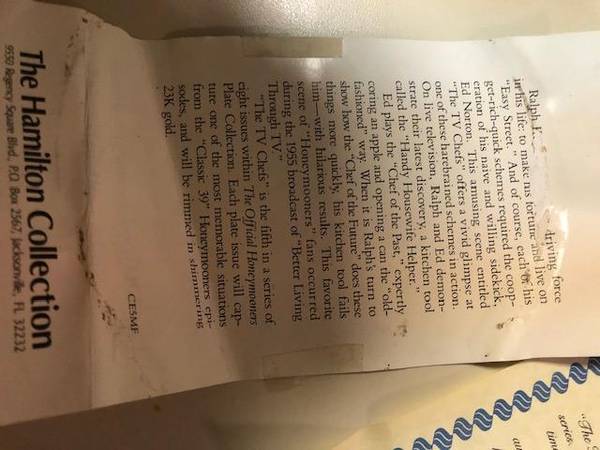 Ralph K driving force
in his life: to make his fortune and live on
"Easy Street." And of course, each of his
get-rich-quick schemes required the coop-
eration of his naive and willing sidekick,
Ed Norton. This amusing scene entitled
"The TV Chefs" offers a vivid glimpse at
one of these harebrained schemes in action.
On live television, Ralph and Ed demon-
strate their latest discovery, a kitchen tool
called the "Handy Housewife Helper."
Ed plays the "Chef of the Past," expertly
coring an apple and opening a can the "old-
fashioned" way. When it is Ralph's turn to
show how the "Chef of the Future" does these
things more quickly, his kitchen tool fails
him—with hilarious results. This favorite
scene of "Honeymooners" fans occurred
during the 1955 broadcast of "Better Living
Through TV."
"The TV Chefs" is the fifth in a series of
eight issues within The Official Honeymooners
Plate Collection. Each plate issue will cap-
ture one of the most memorable situations
from the "Classic 39" Honeymooners epi-
sodes, and will be rimmed in shimmering
23K gold.
CE5MF
The Hamilton Collection
9550 Regency Square Blvd., P.O. Box 2567, Jacksonville, FL 32232
"The
series.
time
an